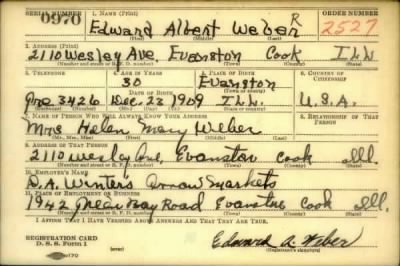 SERIAL NUMBER 1. NAME (Print) ORDER NUMBER
0970 Edward Albert Weber R 2527
(First) (Middle) (Last)
2. ADDRESS (Print)
2110 Wesley Ave, Evanston Cook ILL
(Number and street or R. F. D. number) (Town) (County) (State)
3. TELEPHONE 4. AGE IN YEARS 5. PLACE OF BIRTH 6. COUNTRY OF CITIZENSHIP
30 Evanston
(Town or county)
Gre 3426 DATE OF BIRTH
Dec 23 1909 ILL. U.S.A.
(Mo.) (Day) (Yr.) (State or country)
7. NAME OF PERSON WHO WILL ALWAYS KNOW YOUR ADDRESS 8. RELATIONSHIP OF THAT PERSON
Mrs Helen Mary Weber
(Mr., Mrs., Miss) (First) (Middle) (Last)
9. ADDRESS OF THAT PERSON
2110 Wesley Ave, Evanston Cook Ill.
(Number and street or R. F. D. number) (Town) (County) (State)
10. EMPLOYER'S NAME
D.A. Winters Arrow Markets
11. PLACE OF EMPLOYMENT OR BUSINESS
1942 Green Bay Road Evanston Cook Ill.
(Number and street or R. F. D. number) (Town) (County) (State)
I AFFIRM THAT I HAVE VERIFIED ABOVE ANSWERS AND THAT THEY ARE TRUE.
REGISTRATION CARD
D. S. S. Form 1 Edward A. Weber
(Registrant's signature)